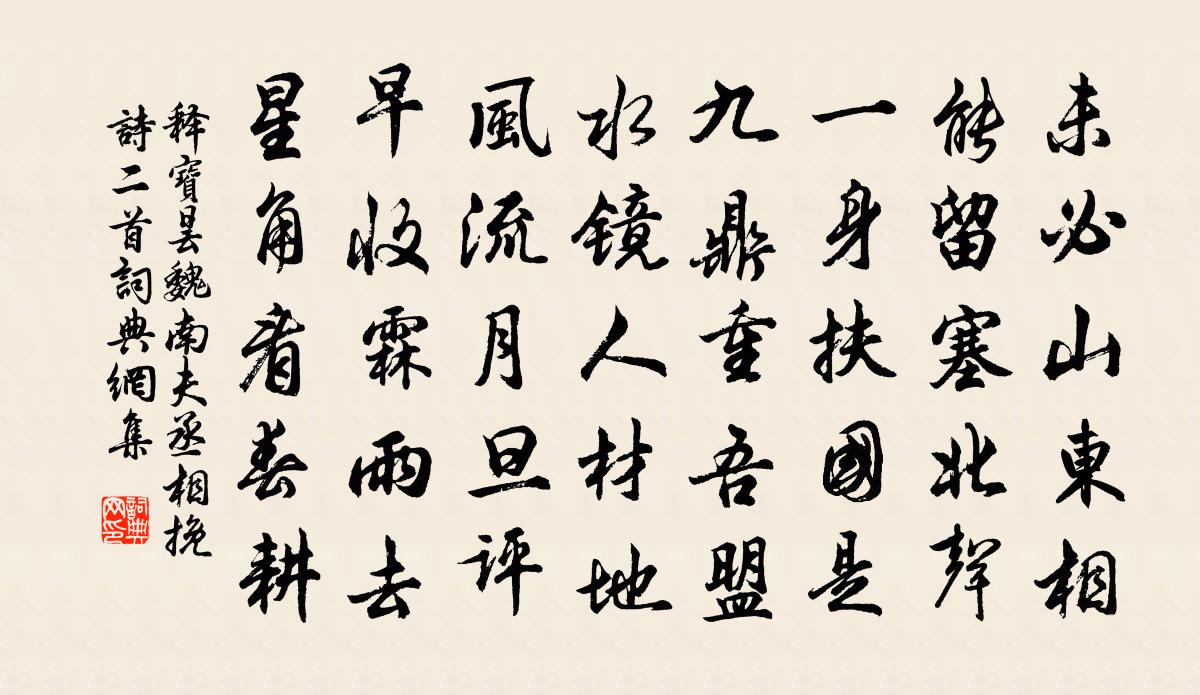 未必山東相
能留塞北聲
一身扶國是
九鼎重吾盟
水镜人材地
風流月旦评
早收霖雨去
星角看春耕
释寶昙魏南夫丞相挽
詩二首詞典網集
詞典网印